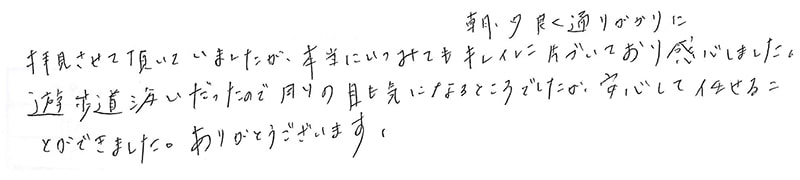 朝、夕良く通りがかりに
拝見させて頂いていましたが、本当にいつみてもキレイに片づいており感心しました。
遊歩道沿いだったので周りの目も気になるところでしたが、安心して任せるこ
とができました。ありがとうございます。